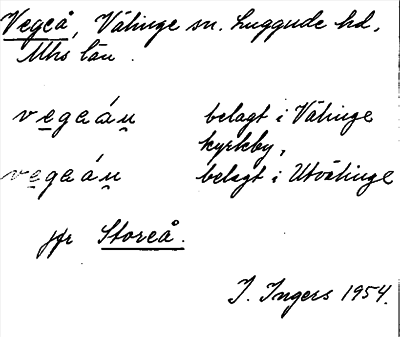 Vegeå, Välinge sn. Luggude hd,
Mhs län.
vegaán belagt i Välinge
kyrkby,
vegaán belagt i Utvälinge
jfr Storeå.
I. Ingers 1954.